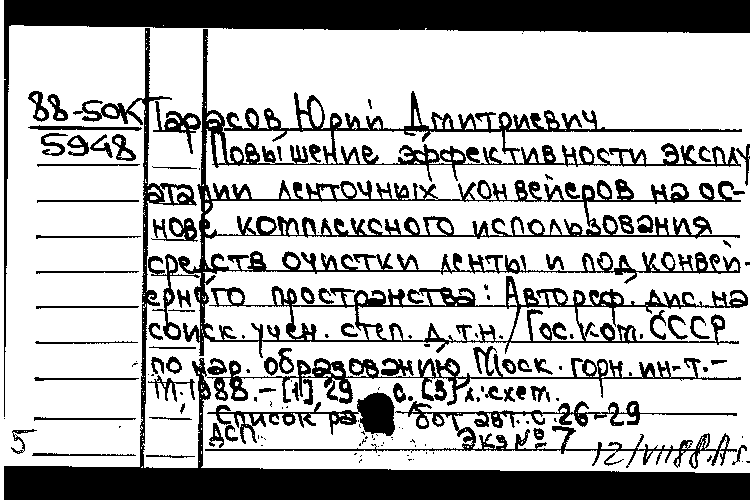 88-50К Тарасов, Юрий Дмитриевич.
5948 Повышение эффективности эксплу
атации ленточных конвейеров на ос-
нове комплексного использования
средств очистки ленты и подконвей-
ерного пространства: Автореф. дис. на
соиск. учен. степ. д.т.н. / Гос. ком. СССР
по нар. образованию, Моск. горн. ин-т.-
М., 1988. - [1], 29 с. [3] л.: схем.
Список работ авт.: с. 26-29
ДСП Экз № 7
5 12/VII88.